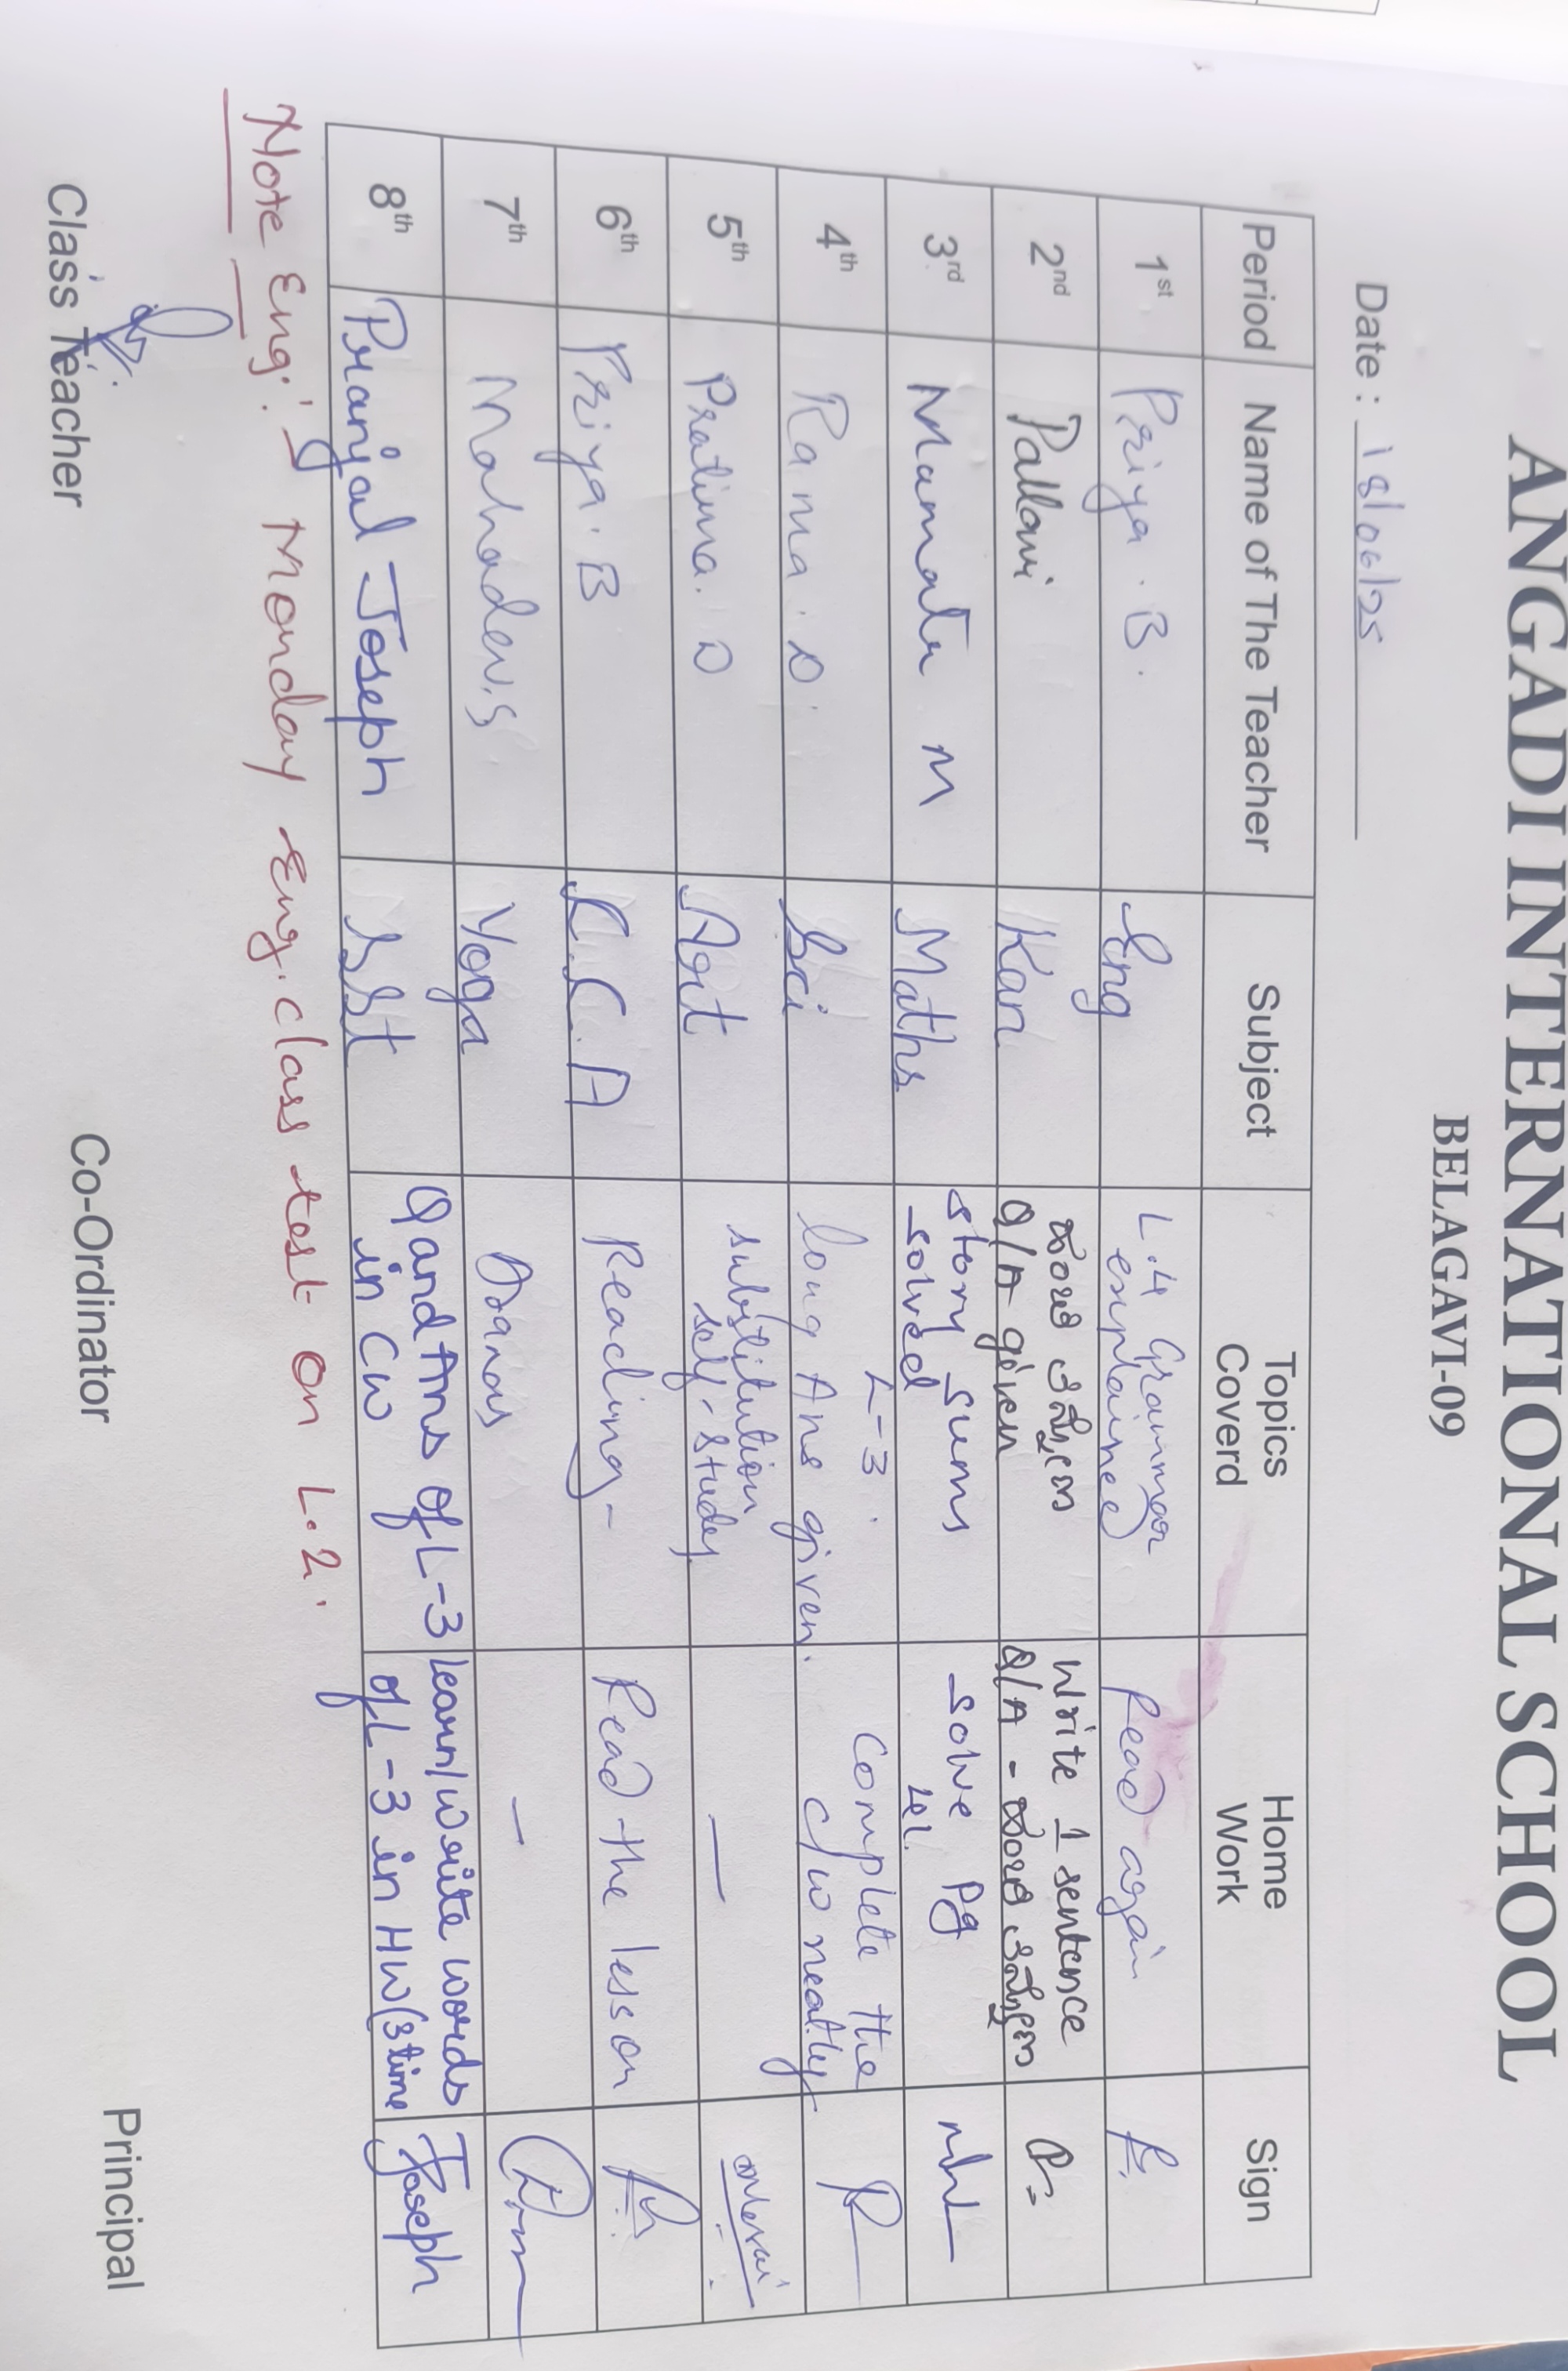 ANGADI INTERNATIONAL SCHOOL
BELAGAVI-09
Date : 18/06/25
Period Name of The Teacher Subject Topics Coverd Home Work Sign
1st Priya . B. Eng L.4 Grammar explained Read again
2nd Pallavi Kan Q/A given Write 1 sentence Q/A -
3rd Mamata M Maths story sums solved solve Pg 41.
4th Rama . D. Sci L-3. long Ans given. Complete the c/w neatly
5th Pratima. D Art substitution self-study —
6th Priya. B C.C.A Reading- Read the lesson
7th Mahadev.S Yoga Asanas —
8th Pranjal Joseph SSt Q and Ans of L-3 in CW learn/write words of L-3 in HW (3 time Joseph
Note Eng:- Monday Eng. class test on L.2.
Class Teacher Co-Ordinator Principal